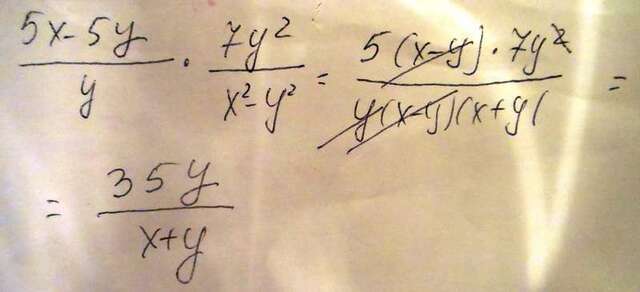 (5x-5y)/y · 7y²/(x²-y²) = 5(x-y)·7y²/(y(x-y)(x+y() =
= 35y/(x+y)